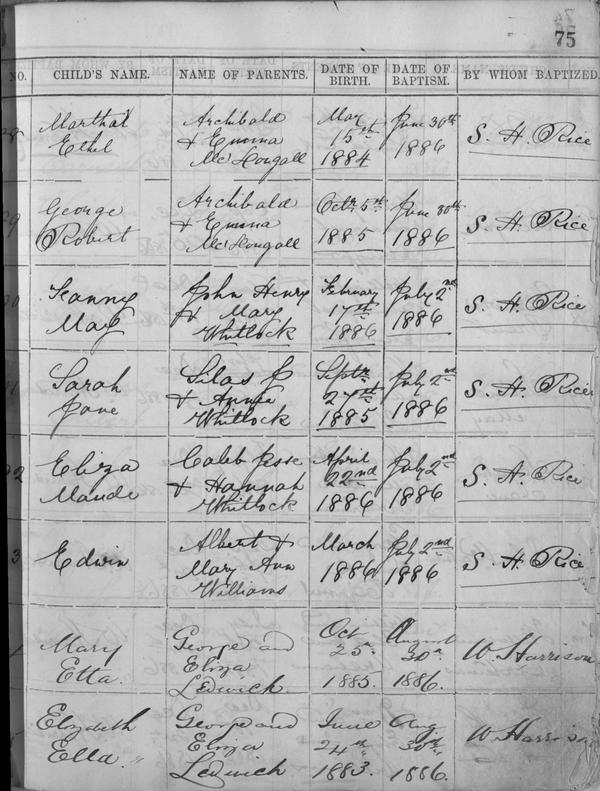 75
NO. CHILD'S NAME. NAME OF PARENTS. DATE OF BIRTH. DATE OF BAPTISM. BY WHOM BAPTIZED.
Martha Archibald May June 30th S. H. Rice
Ethel & Emma 15th 1886
McDougall 1884
George Archibald Octr. 5th June 30th S. H. Rice
Robert & Emma 1885 1886
McDougall
John Henry February July 2nd S. H. Rice
May & Mary 17th 1886
Whitlock 1886
Sarah Silas J Septr. July 2nd S. H. Rice
Jane & Annie 27th 1886
Whitlock 1885
2 Eliza Caleb Jesse April July 2nd S. H. Rice
Maude & Hannah 22nd 1886
Whitlock 1886
3 Edwin Albert & March July 2nd S. H. Rice
Mary Ann 1886 1886
Williams
Mary George and Oct August W. Harrison
Etta. Eliza 25 30th
Ledwich 1885. 1886.
Elizabeth George and June Aug W. Harrison
Ella " Eliza 24th 30th
Ledwich 1883. 1886.